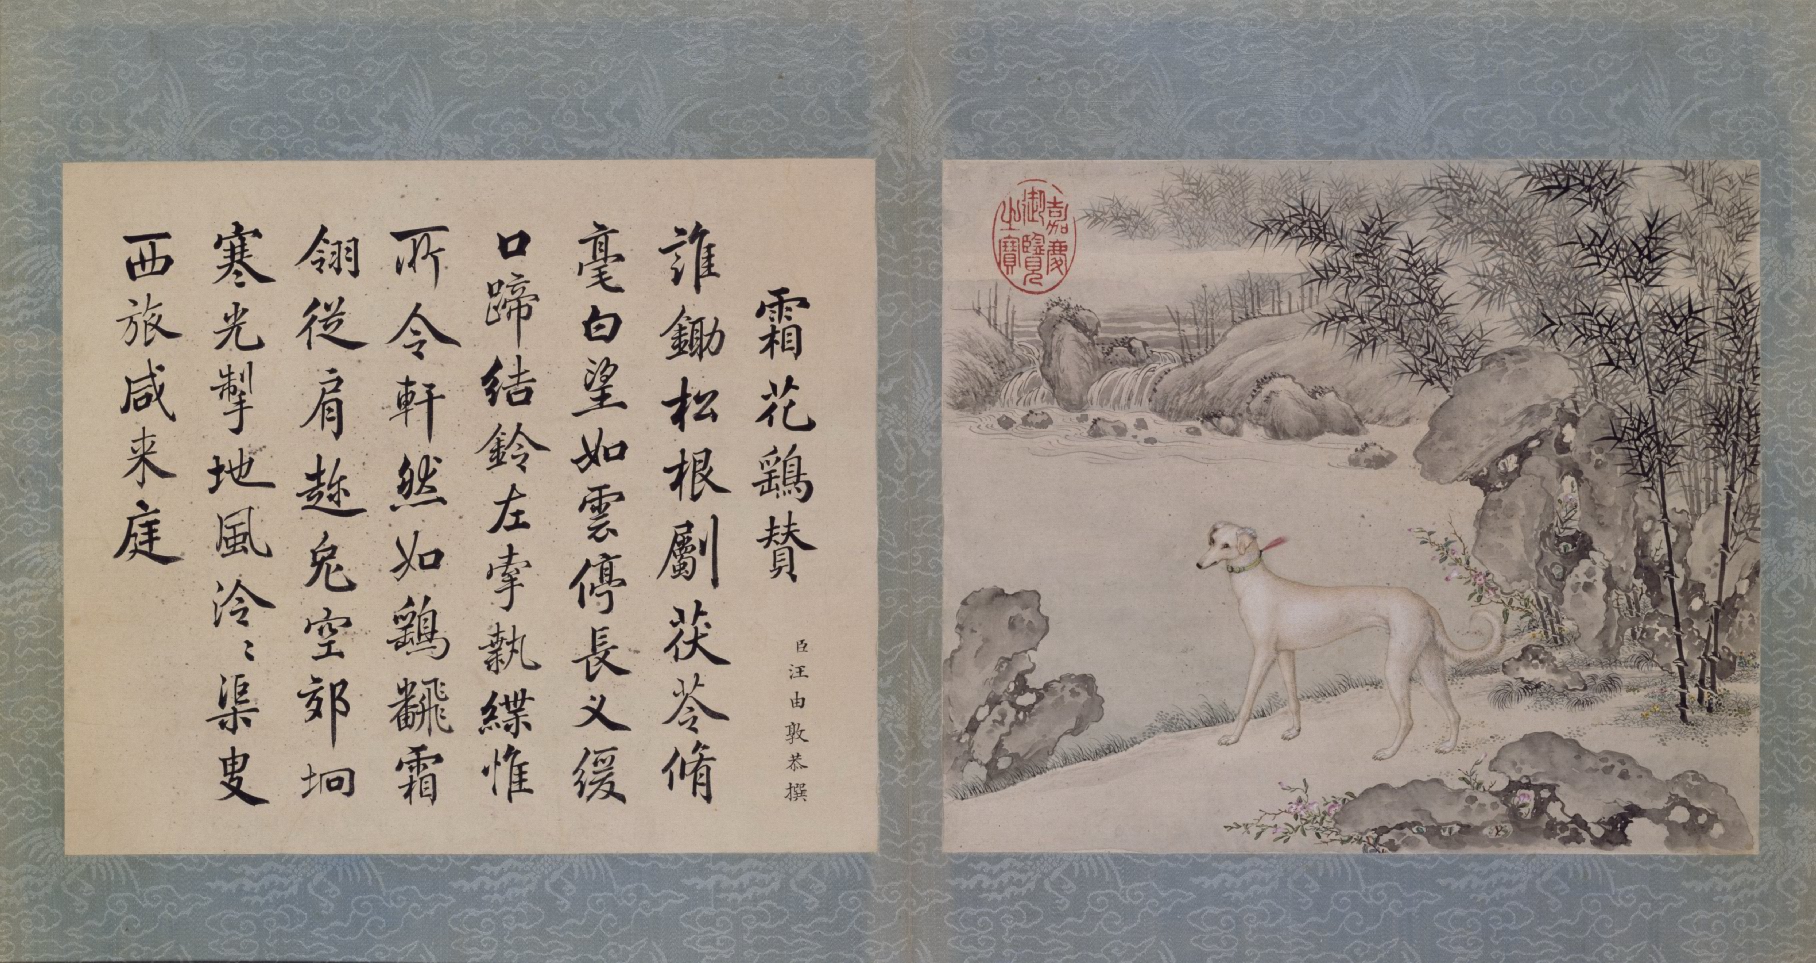 霜花鷂賛
臣汪由敦恭撰
誰鋤松根劚茯苓脩
毫白望如雲停長乂緩
口蹄結鈴左牽執緤惟
所令軒然如鷂飜霜
翎從肩趂兔空郊坰
寒光掣地風泠〻渠叟
西旅咸来庭
嘉慶
御覽
之寶